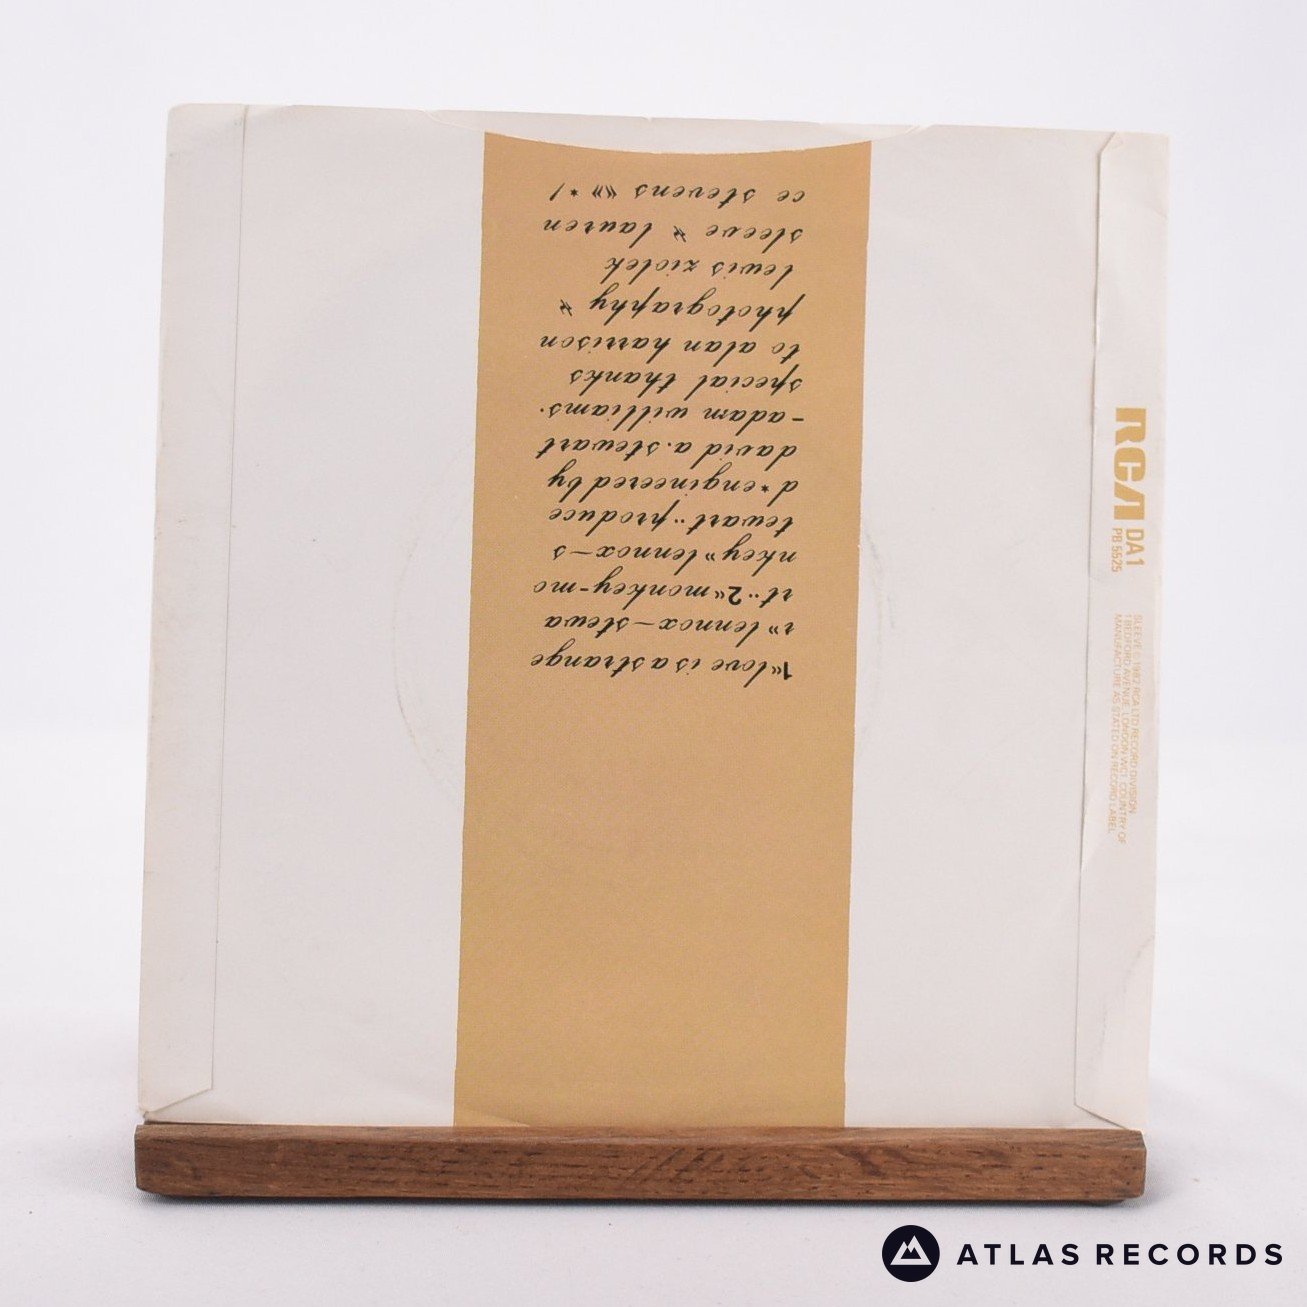 1“love is a strange
r” lennox – stewa
rt·· 2“monkey-mo
nkey” lennox – s
tewart·· produce
d*engineered by
david a. stewart
-adam williams.
special thanks
to alan harrison
photography #
lewis ziolek
sleeve # lauren
ce stevens «» * /
RCA DA1
PB 5525
SLEEVE © 1982 RCA LTD RECORD DIVISION
1 BEDFORD AVENUE, LONDON WC1. COUNTRY OF
MANUFACTURE AS STATED ON RECORD LABEL
ATLAS RECORDS